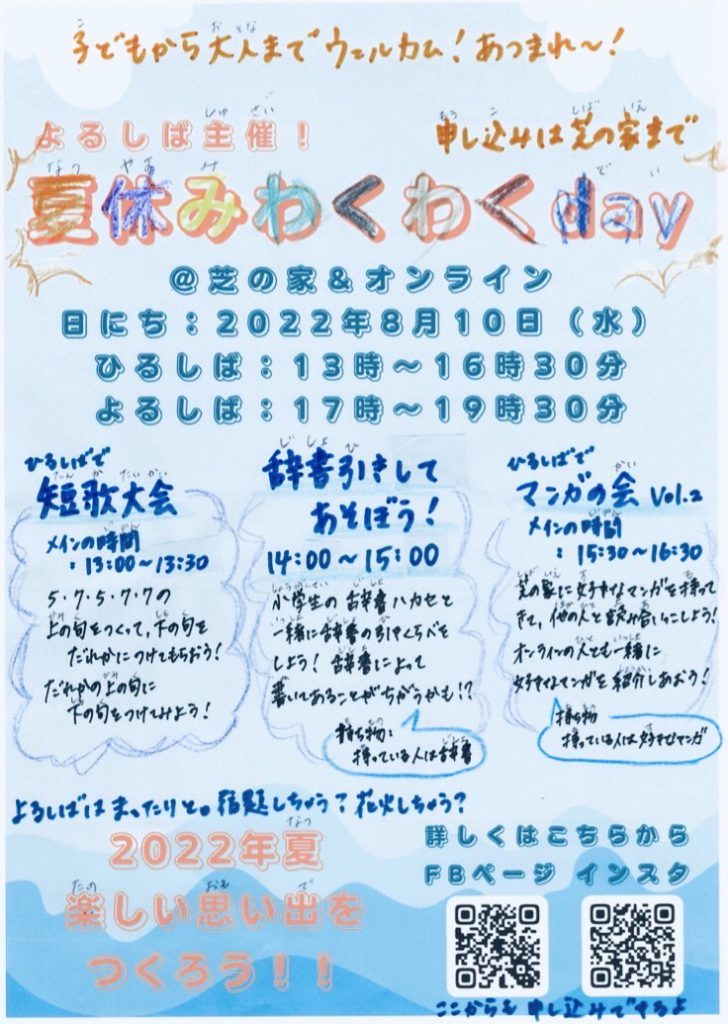 子どもから大人までウェルカム！あつまれ〜！
よるしば主催！
申し込みは芝の家まで
夏休みわくわくday
＠芝の家＆オンライン
日にち：2022年8月10日（水）
ひるしば：13時〜16時30分
よるしば：17時〜19時30分
ひるしばで
短歌大会
メインの時間
：13:00〜13:30
5・7・5・7・7の
上の句をつくって、下の句を
だれかにつけてもらおう！
だれかの上の句に
下の句をつけてみよう！
辞書引きして
あそぼう！
14:00〜15:00
小学生の辞書ハカセと
一緒に辞書の引きくらべを
しよう！辞書によって
書いてあることがちがうかも!?
持ち物：
持っている人は辞書
ひるしばで
マンガの会 Vol.2
メインの時間
：15:30〜16:30
芝の家に好きなマンガを持って
きて、他の人と読み合いっこしよう！
オンラインの人とも一緒に
好きなマンガを紹介しあおう！
持ち物
持っている人は好きなマンガ
よるしばはまったりと。宿題しちゃう？花火しちゃう？
2022年夏
楽しい思い出を
つくろう！！
詳しくはこちらから
FBページ インスタ
ここからも申し込みできるよ